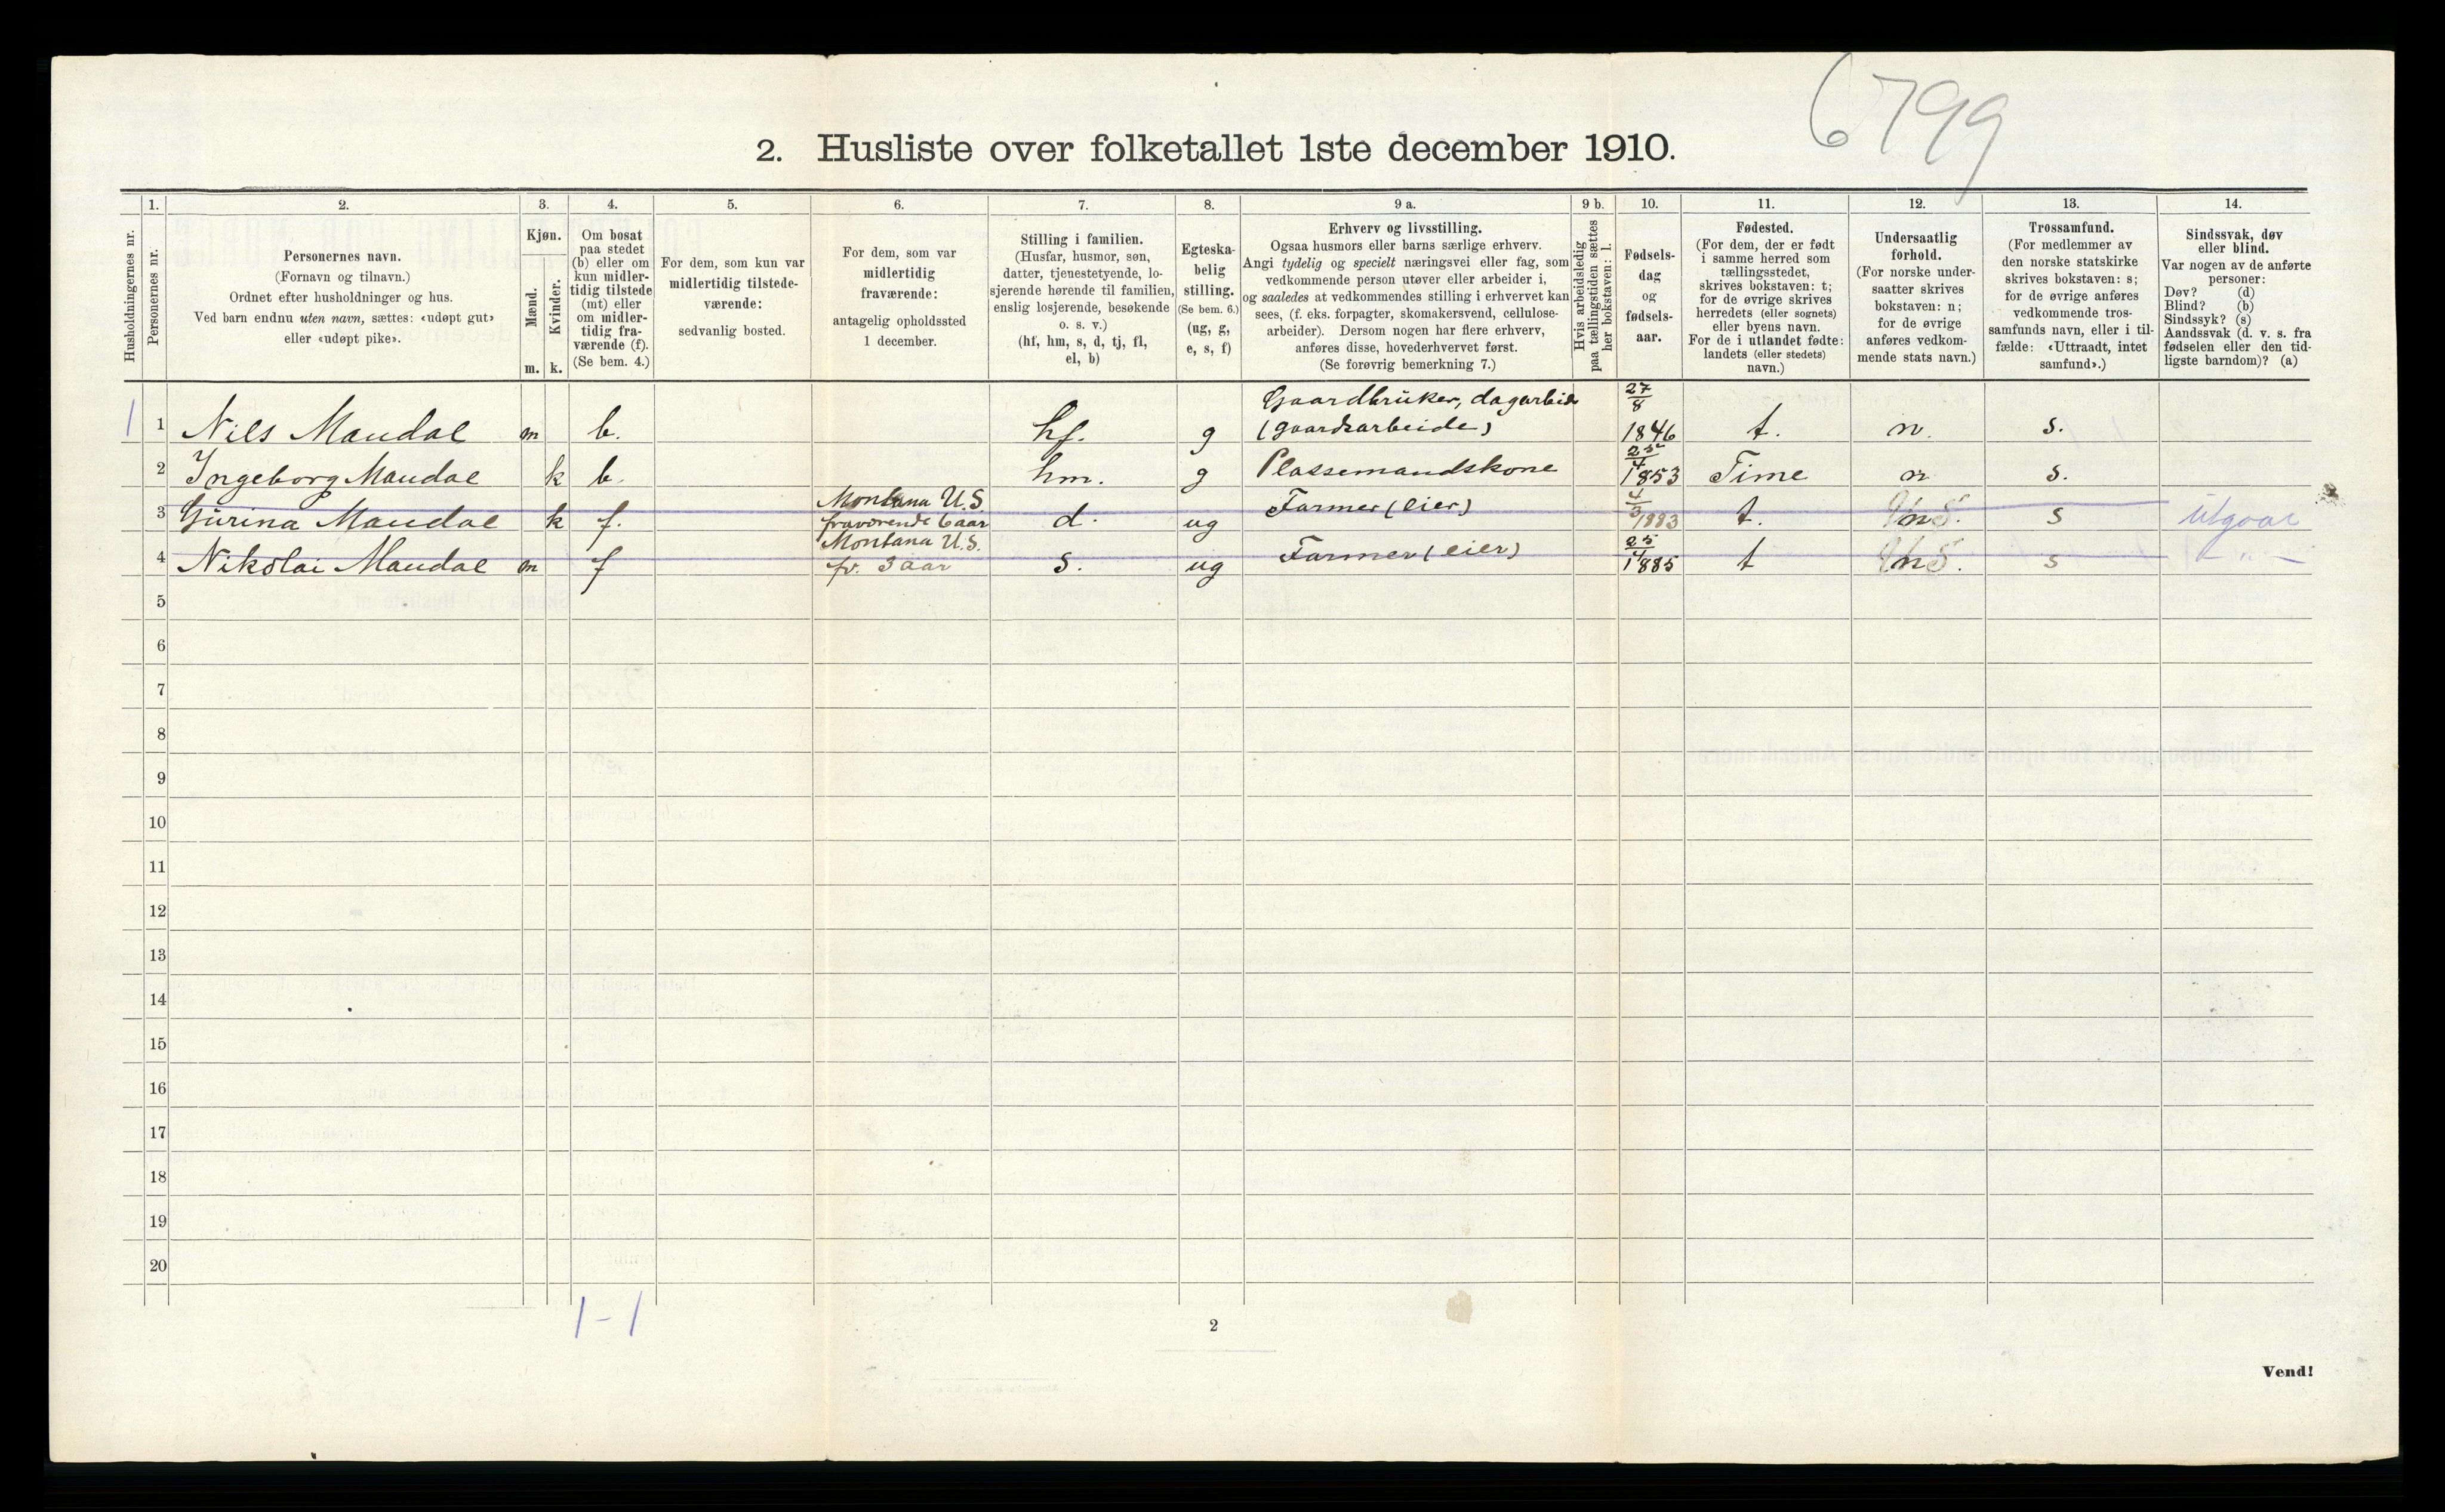 6799
2. Husliste over folketallet 1ste december 1910.
Husholdningernes nr.
1.
Personernes nr.
2.
Personernes navn.
(Fornavn og tilnavn.)
Ordnet efter husholdninger og hus.
Ved barn endnu uten navn, sættes: «udøpt gut»
eller «udøpt pike».
3.
Kjøn.
Mænd.
Kvinder.
m. k.
4.
Om bosat
paa stedet
(b) eller om
kun midler-
tidig tilstede
(mt) eller
om midler-
tidig fra-
værende (f).
(Se bem. 4.)
5.
For dem, som kun var
midlertidig tilstede-
værende:
sedvanlig bosted.
6.
For dem, som var
midlertidig
fraværende:
antagelig opholdssted
1 december.
7.
Stilling i familien.
(Husfar, husmor, søn,
datter, tjenestetyende, lo-
sjerende hørende til familien,
enslig losjerende, besøkende
o. s. v.)
(hf, hm, s, d, tj, fl,
el, b)
8.
Egteska-
belig
stilling.
(Se bem. 6.)
(ug, g,
e, s, f)
9 a.
Erhverv og livsstilling.
Ogsaa husmors eller barns særlige erhverv.
Angi tydelig og specielt næringsvei eller fag, som
vedkommende person utøver eller arbeider i,
og saaledes at vedkommendes stilling i erhvervet kan
sees, (f. eks. forpagter, skomakersvend, cellulose-
arbeider). Dersom nogen har flere erhverv,
anføres disse, hovederhvervet først.
(Se forøvrig bemerkning 7.)
9 b.
Hvis arbeidsledig
paa tællingstiden sættes
her bokstaven: l.
10.
Fødsels-
dag
og
fødsels-
aar.
11.
Fødested.
(For dem, der er født
i samme herred som
tællingsstedet,
skrives bokstaven: t;
for de øvrige skrives
herredets (eller sognets)
eller byens navn.
For de i utlandet fødte:
landets (eller stedets)
navn.)
12.
Undersaatlig
forhold.
(For norske under-
saatter skrives
bokstaven: n;
for de øvrige
anføres vedkom-
mende stats navn.)
13.
Trossamfund.
(For medlemmer av
den norske statskirke
skrives bokstaven: s;
for de øvrige anføres
vedkommende tros-
samfunds navn, eller i til-
fælde: «Uttraadt, intet
samfund».)
14.
Sindssvak, døv
eller blind.
Var nogen av de anførte
personer:
Døv? (d)
Blind? (b)
Sindssyk? (s)
Aandssvak (d. v. s. fra
fødselen eller den tid-
ligste barndom)? (a)
1 1 Nils Maudal m b. hf. g Gaardbruker, dagarbeid (gaardsarbeide) 27/8 1846 t. n. s.
2 Ingeborg Maudal k b. hm. g Plassemandskone 25/4 1853 Time n s.
3 Gurina Maudal k f. Montana U.S. fraværende 6 aar d. ug Farmer (eier) 4/3 1883 t. n s Utgaar
4 Nikolai Maudal m f Montana U.S. fr. 3 aar s. ug Farmer (eier) 25/4 1885 t n s — " —
5
6
7
8
9
10
11
12
13
14
15
16
17
18
19
20
1 - 1
2
Vend!